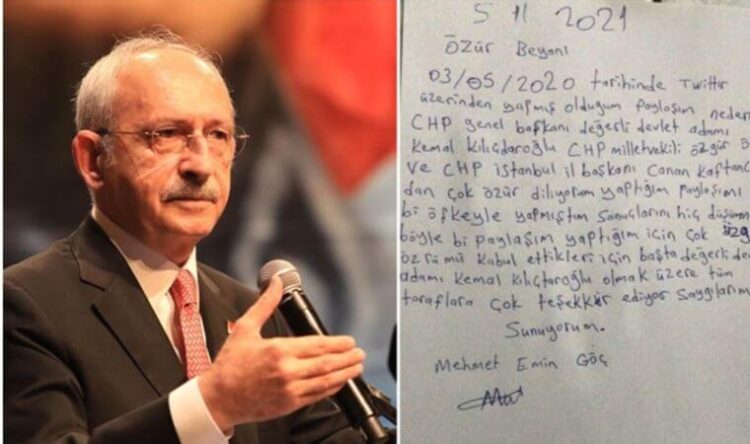 5 11 2021
Özür Beyanı
03/05/2020 tarihinde Twittır
üzerinden yapmış olduğum paylaşım neden
CHP genel başkanı değerli devlet adamı
Kemal Kılıçdaroğlu CHP milletvekili özgür ö
ve CHP istanbul il başkanı Canan Kaftanc
dan çok özür diliyorum yaptığım paylaşımı
bi öfkeyle yapmıştım sonuçlarını hiç düşünm
böyle bi paylaşım yaptığım için çok üzg
özrümü kabul ettikleri için başta değerli de
adamı Kemal Kılıçtaroğlu olmak üzere tüm
taraflara çok teşekkür ediyor saygılarım
Sunuyorum.
Mehmet Emin Göç